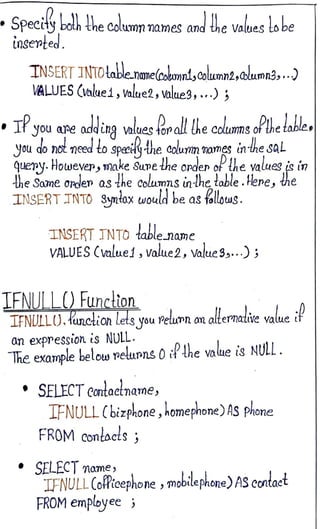 • Specify both the column names and the values to be
inserted.
INSERT INTO table_name(column1, column2, column3, ...)
VALUES (value1, value2, value3, ...) ;
• If you are adding values for all the columns of the table,
you do not need to specify the column names in the SQL
query. However, make sure the order of the values is in
the same order as the columns in the table. Here, the
INSERT INTO syntax would be as follows.
INSERT INTO table_name
VALUES (value1, value2, value3, ...) ;
IFNULL() Function
IFNULL(). function lets you return an alternative value if
an expression is NULL.
The example below returns 0 if the value is NULL.
• SELECT contactname,
IFNULL (bizphone, homephone) AS phone
FROM contacts ;
• SELECT name,
IFNULL (officephone, mobilephone) AS contact
FROM employee ;